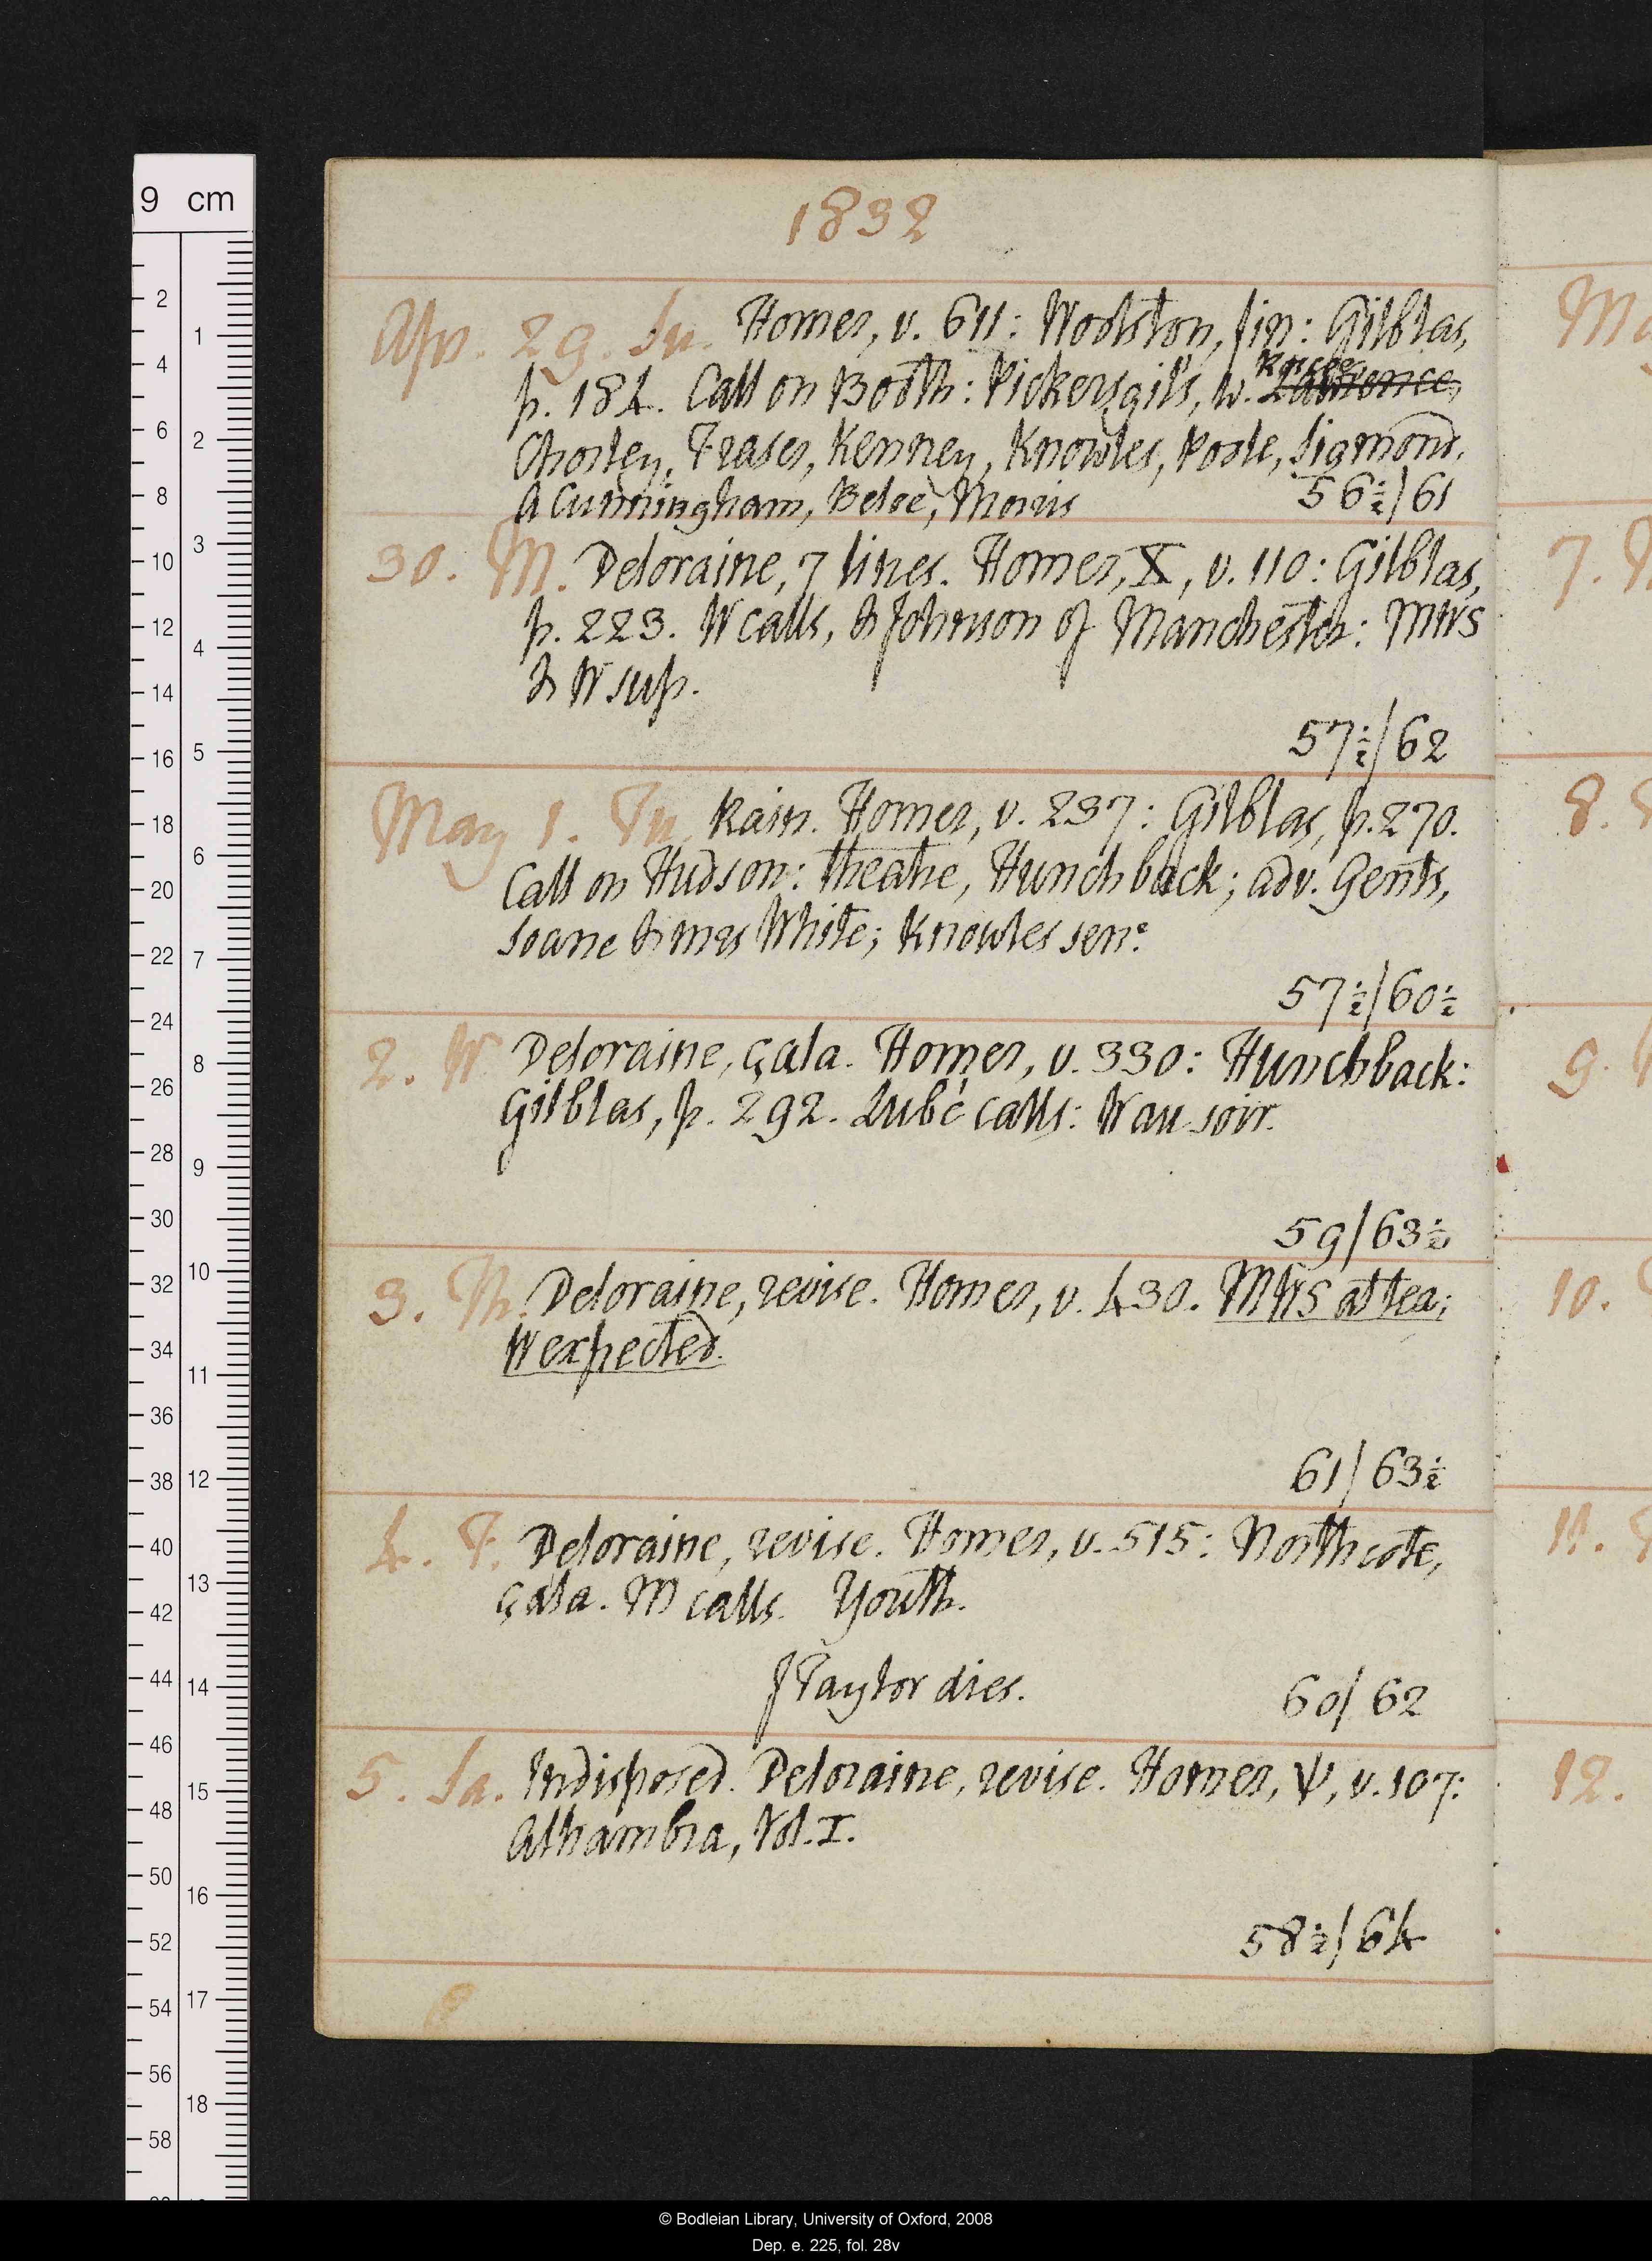 9 cm
1832
Apr. 29. Su. Homer, v. 611: Woolston, fin: Gilblas,
p. 184. Call on Booth: Pickersgil's, w. Roscoe Lawrence,
Chorley, Fraser, Kenney, Knowles, Poole, Sigmond,
A Cunningham, Beloe, Morris 56½/61
30. M. Deloraine, 7 lines. Homer, X, v. 110: Gilblas,
p. 223. W calls, & Johnson of Manchester: MWS
& W sup.
57½/62
May 1. Tu. Rain. Homer, v. 237: Gilblas, p. 270.
Call on Hudson: theatre, Hunchback; adv. Gents,
Soane & mrs White; Knowles senr
57½/60½
2. W Deloraine, çala. Homer, v. 330: Hunchback:
Gilblas, p. 292. Lubé calls: W au soir.
59/63½
3. Th. Deloraine, revise. Homer, v. 430. MWS at tea;
W expected.
61/63½
4. F. Deloraine, revise. Homer, v. 515: Northcote,
çala. M calls. Youth.
J Taylor dies. 60/62
5. Sa. Indisposed. Deloraine, revise. Homer, Ψ, v. 107:
Alhambra, Vol. I.
58½/64
© Bodleian Library, University of Oxford, 2008
Dep. e. 225, fol. 28v